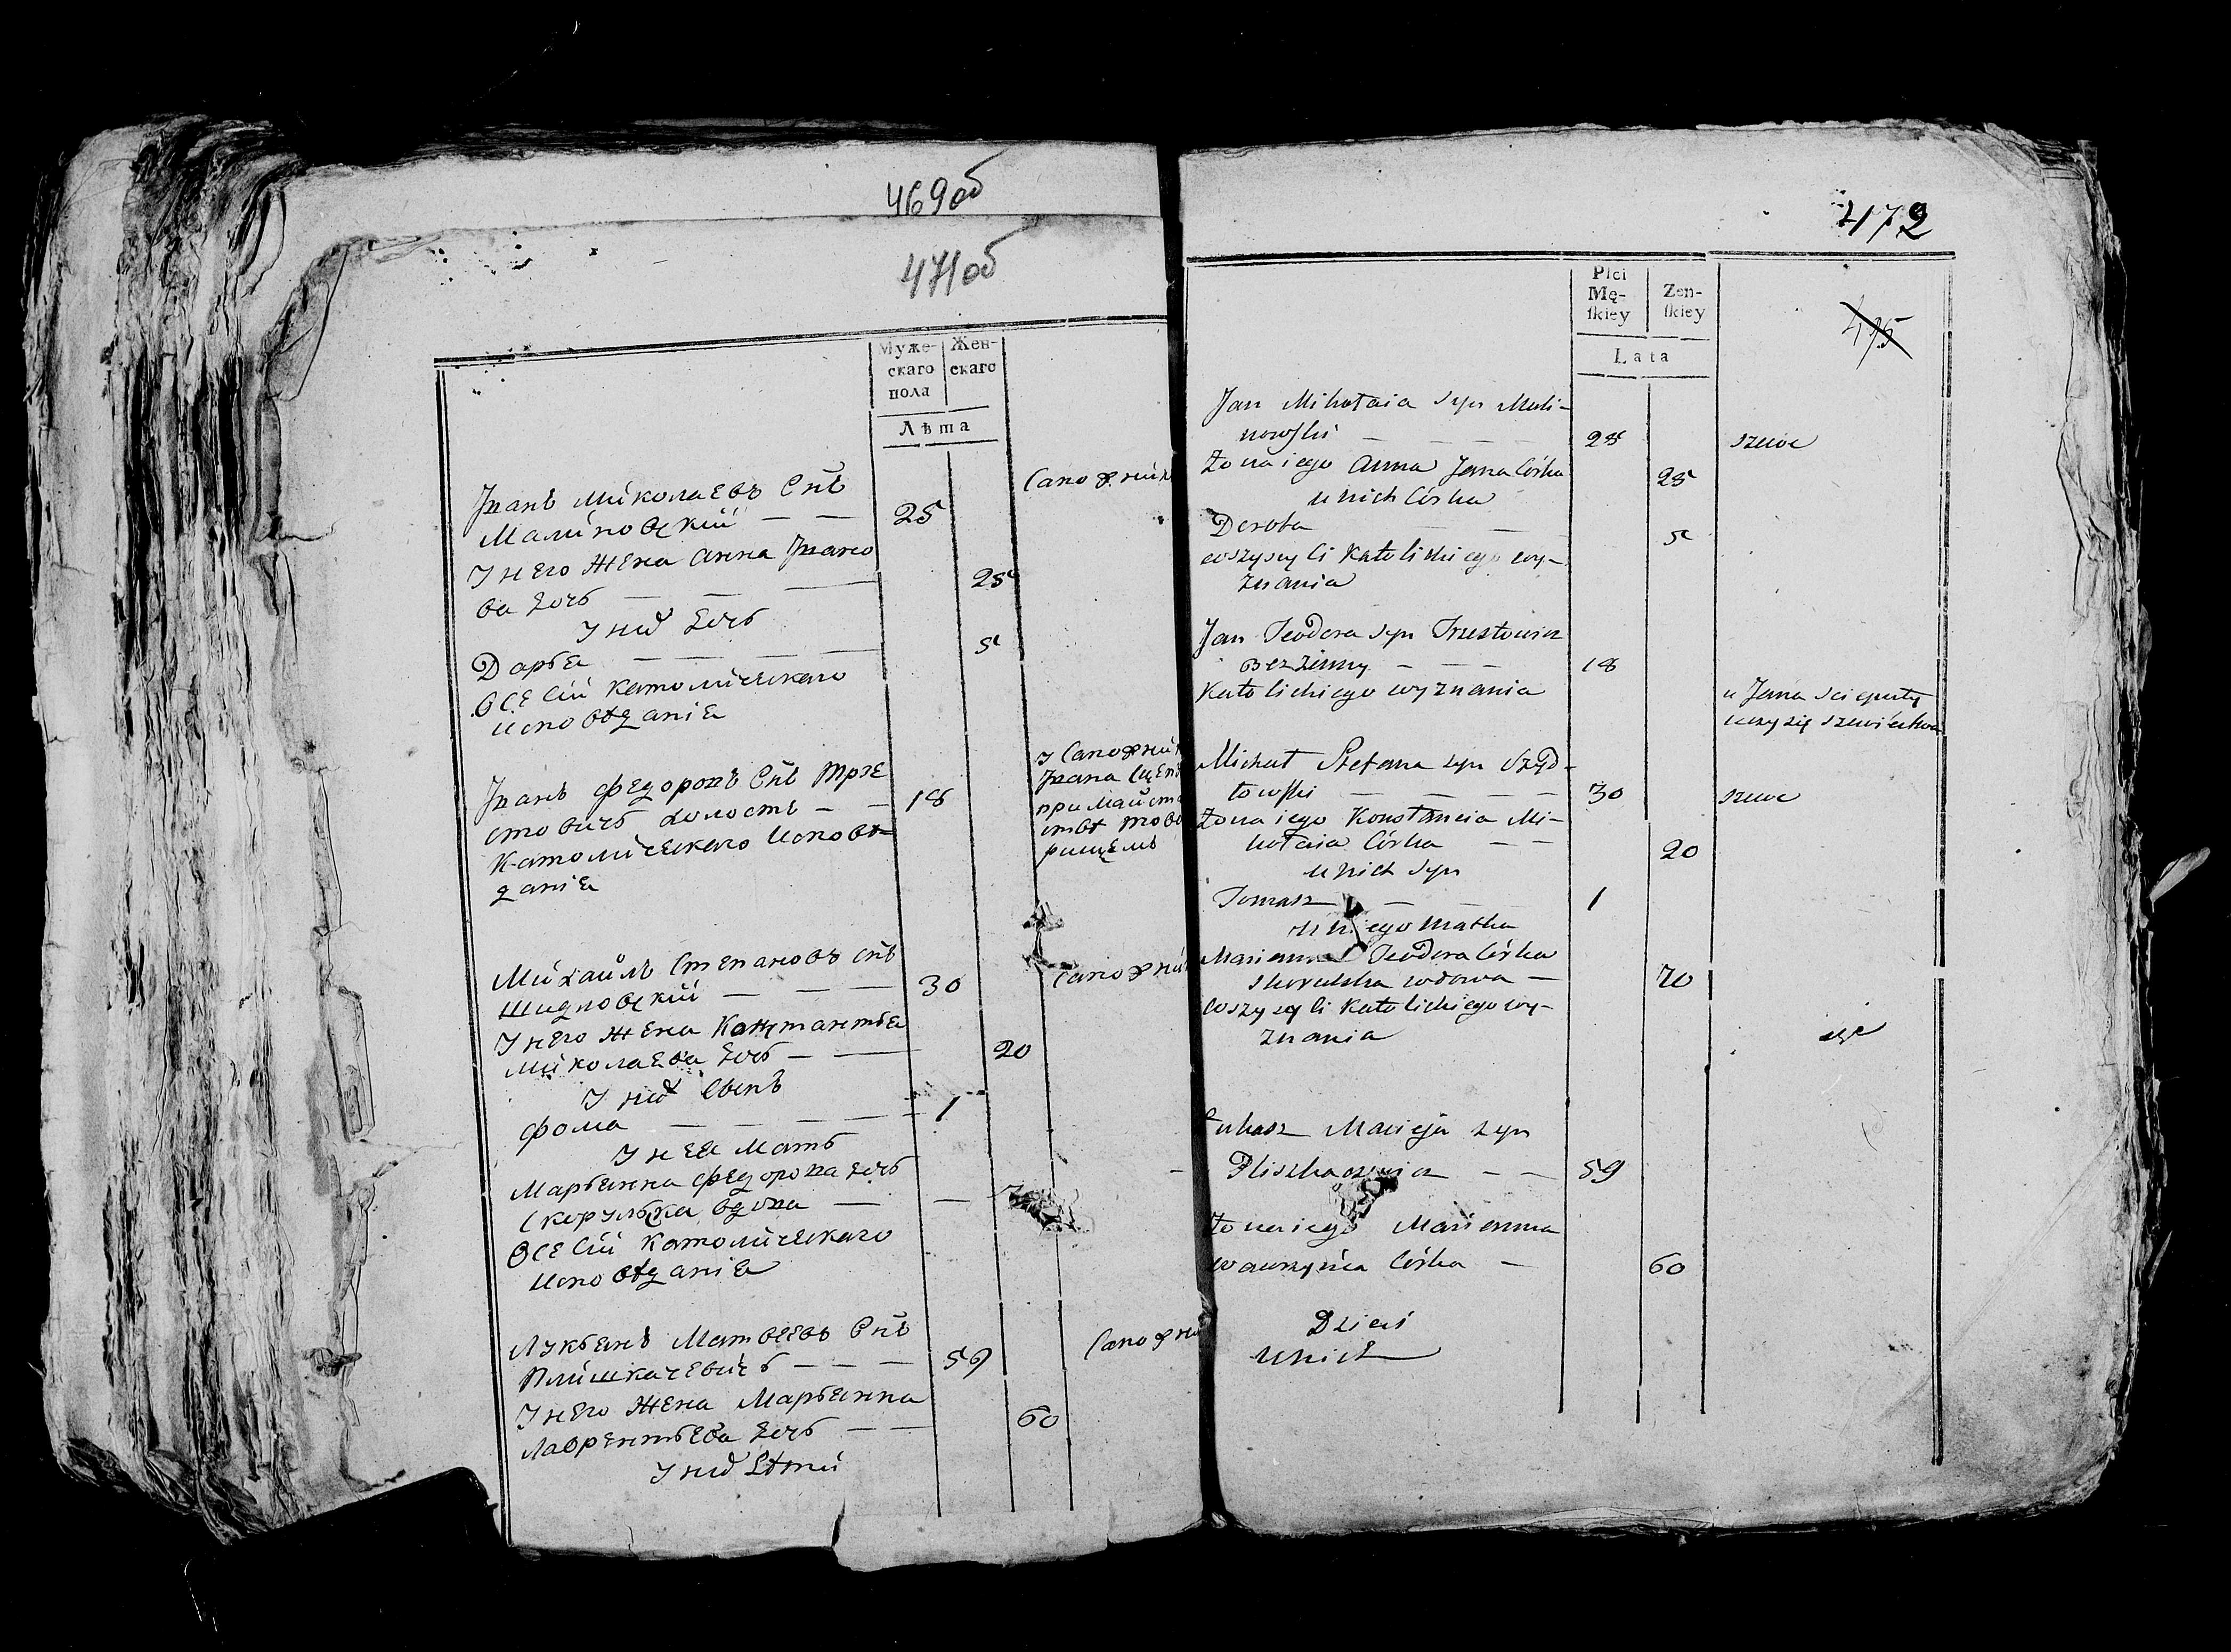 469об
471об
Муже-
скаго
пола
Жен-
скаго
Лѣта
Иванъ Миколаевъ Снъ
Малиновский — — 25 Сапожник
У него Жена Анна Ивано
ва дочь — — — 25
У них дочь
Дарья — — — — 5
Все сии католического
исповѣдания
Иванъ Федоровъ Снъ Трзе
стовичъ холостъ — — 18
Католического исповѣ-
дания
У Сапожник
Ивана
при
рищемъ
Михайлъ Степановъ снъ
Шидловский — — — 30 Сапожни
У него Жена Константья
Миколаева дочь — — 20
У них Сынъ
Фома — — — — 1
У нея Мать
Марьянна Федорова дочь
Скорульска вдова — —
Все Сии Католического
исповѣдания
Лукьянъ Матвеевъ Снъ
Плишкачевичъ — — — 59 Сапожни
У него Жена Марьянна
Лаврентьева дочь — — 60
У них дѣти
472
Płci
Mę-
ſkiey
Zen-
ſkiey
Lata
495
Jan Mikołaia syn Mali-
nowſki — — — — szewc
Zona iego Anna Jana Córka 25
u nich Córka
Dorota — — 5
wszyscy ci Katolickiego wy-
znania
Jan Teodora syn Trzestowicz
Bezżenny — — — 18
Katolickiego wyznania
u Jana
uczy się szewiectwa
Michał Stefana syn Szyd-
łowſki — — — — 30 szewc
Zona iego Konstancia Mi-
kołaia Córka — — 20
u nich syn
Tomasz — — — 1
u niego matka
Marianna Teodora Córka
Skorulska wdowa — 70
wszyscy ci Katolickiego wy-
znania
Łukasz Macieja syn
Pliszkaczewicz — — 59
Zona iego Marianna
Wawrzyńca Córka — 60
Dzieci
u nich